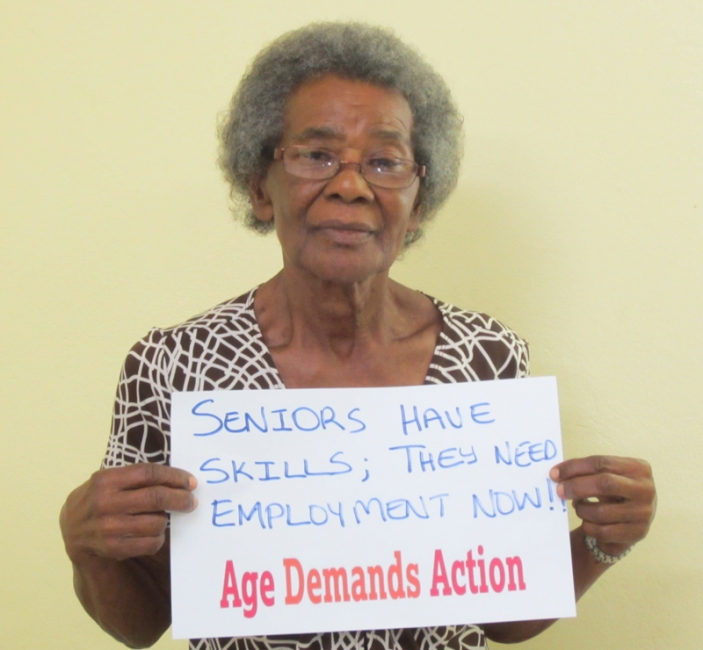 SENIORS HAVE
SKILLS; THEY NEED
EMPLOYMENT NOW!!
Age Demands Action